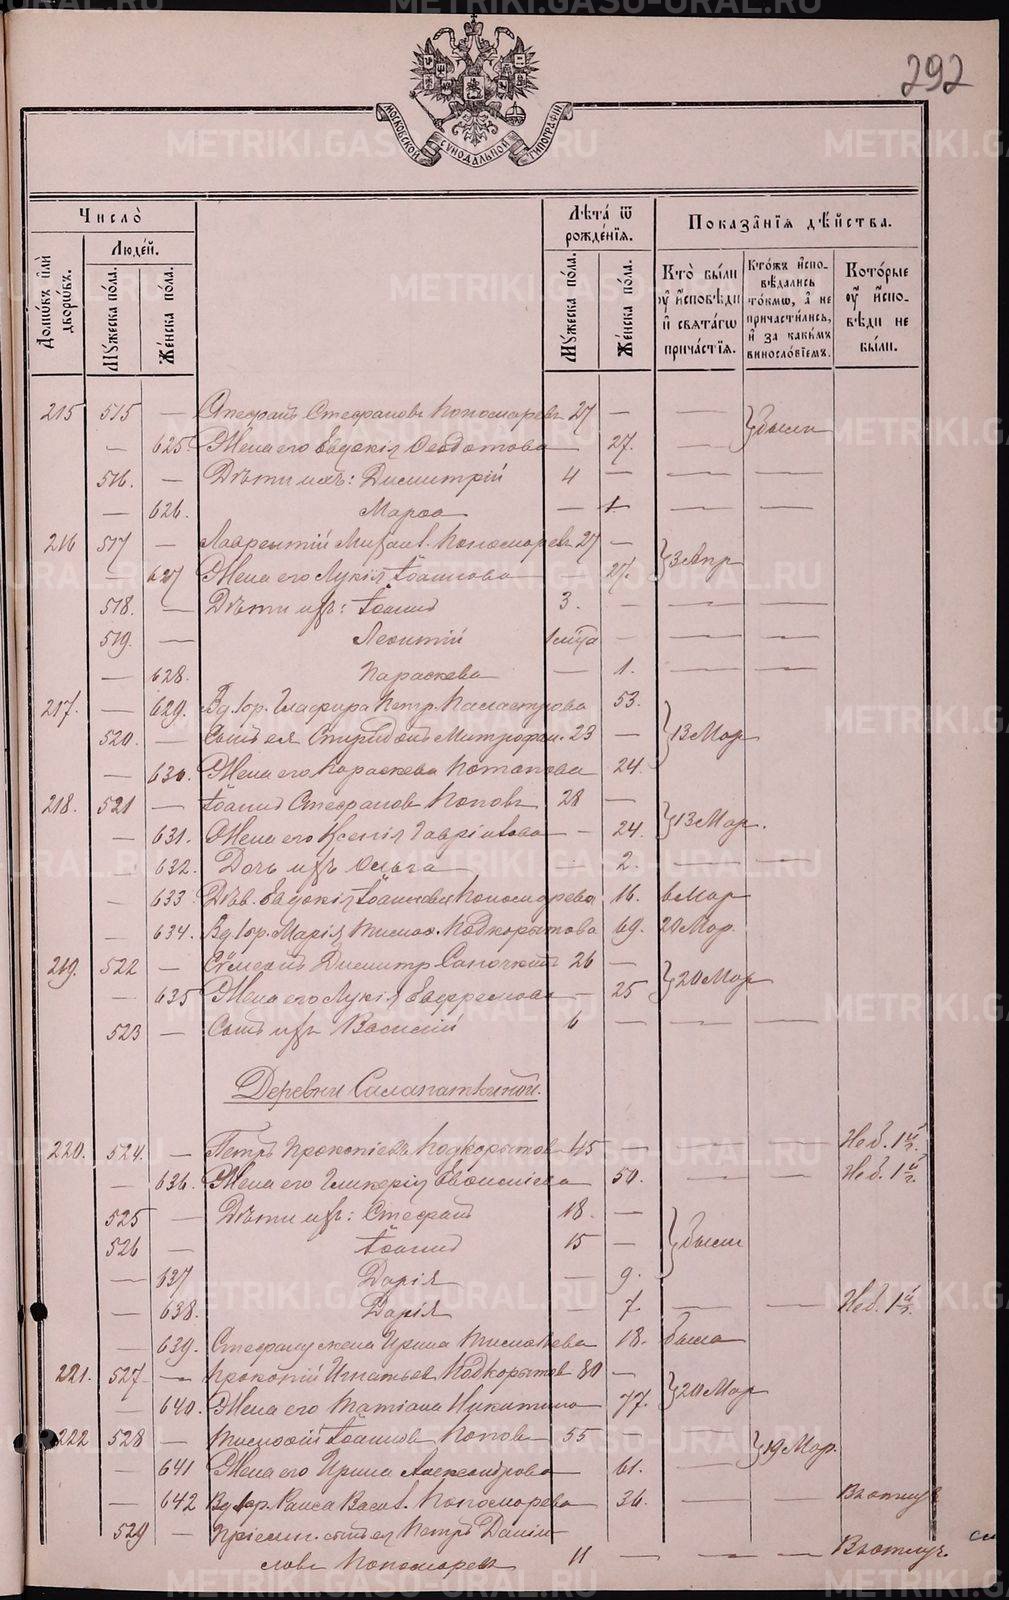 292
МОСКОВСКОЙ СУНОДАЛЬНОЙ ТИПОГРАФІИ
Число
Лѣта ѿ рожденїѧ.
Показанїѧ дѣйства.
Людей.
Домѡвъ или дворѡвъ.
Мужеска пола.
Женска пола.
Мужеска пола.
Женска пола.
Кто были ѹ исповѣди и свѧтагѡ причастїѧ.
Ктожъ исповѣдались токмѡ, а не причастились, и за какимъ винословїемъ.
Которые ѹ исповѣди не были.
215 515 — Стефанъ Стефановъ Пономаревъ 27 — — } были
— 625 Жена его Евдокія Ѳеодотова — 27. —
516. — Дѣти ихъ: Димитрій 4 — — —
— 626. Марѳа — 1 — —
216 517 — Лаврентій Михаил. Пономаревъ 27 — } 3 Апр
— 627 Жена его Лукія Іоаннова — 27.
518. — Дѣти ихъ: Іоаннъ 3. — — —
519. — Леонтій 1 мца — — —
— 628. Параскева — 1. — —
217. — 629. Вд. Глафира Петр. 53. } 13 Мар
520. — Сынъ ея Спиридонъ Митрофан. 23 —
— 630. Жена его Параскева Потапова 24.
218. 521 — Іоаннъ Стефановъ Поповъ 28 — } 13 Мар.
— 631. Жена его Ксенія Гавріилова — 24.
— 632. Дочь ихъ Ольга 2. — —
— 633. Дѣв. Евдокія Іоаннова Пономарева 16. 6 Мар
— 634. Вд. Марія Тимоѳ. Подкорытова 69. 20 Мар.
219. 522 — Симеонъ Димитр. 26 — } 20 Мар
— 635 Жена его Лукія Ефремова — 25
523 — Сынъ ихъ Василій 6 — — —
Деревни Салапаткиной.
220. 524. — Петръ Прокопіевъ Подкорытовъ 45 — — — Не б. 1й г.
— 636. Жена его Гликерія 50. — — Не б. 1й г.
525 — Дѣти ихъ: Стефанъ 18. — } были
526 — Іоаннъ 15 —
— 637 Дарія — 9.
— 638. Дарія — 7 — — Не б. 1й г.
— 639. Стефану жена Ирина Тимоѳеева 18. была
221. 527 — Прокопій Игнатьевъ Подкорытовъ 80 — } 20 Мар
— 640. Жена его Татіана Никитина 77.
222 528 — Тимоѳій Іоанновъ Поповъ 55 — — } 19 Мар.
— 641 Жена его Ирина Александрова — 61. —
— 642 Вд. Раиса Васил. Пономарева — 36. — — Въ отлуч
529 — Пріемн. сынъ ея Петръ Дани-
ловъ Пономаревъ 11 — — — Въ отлуч.
METRIKI.GASU-URAL.RU